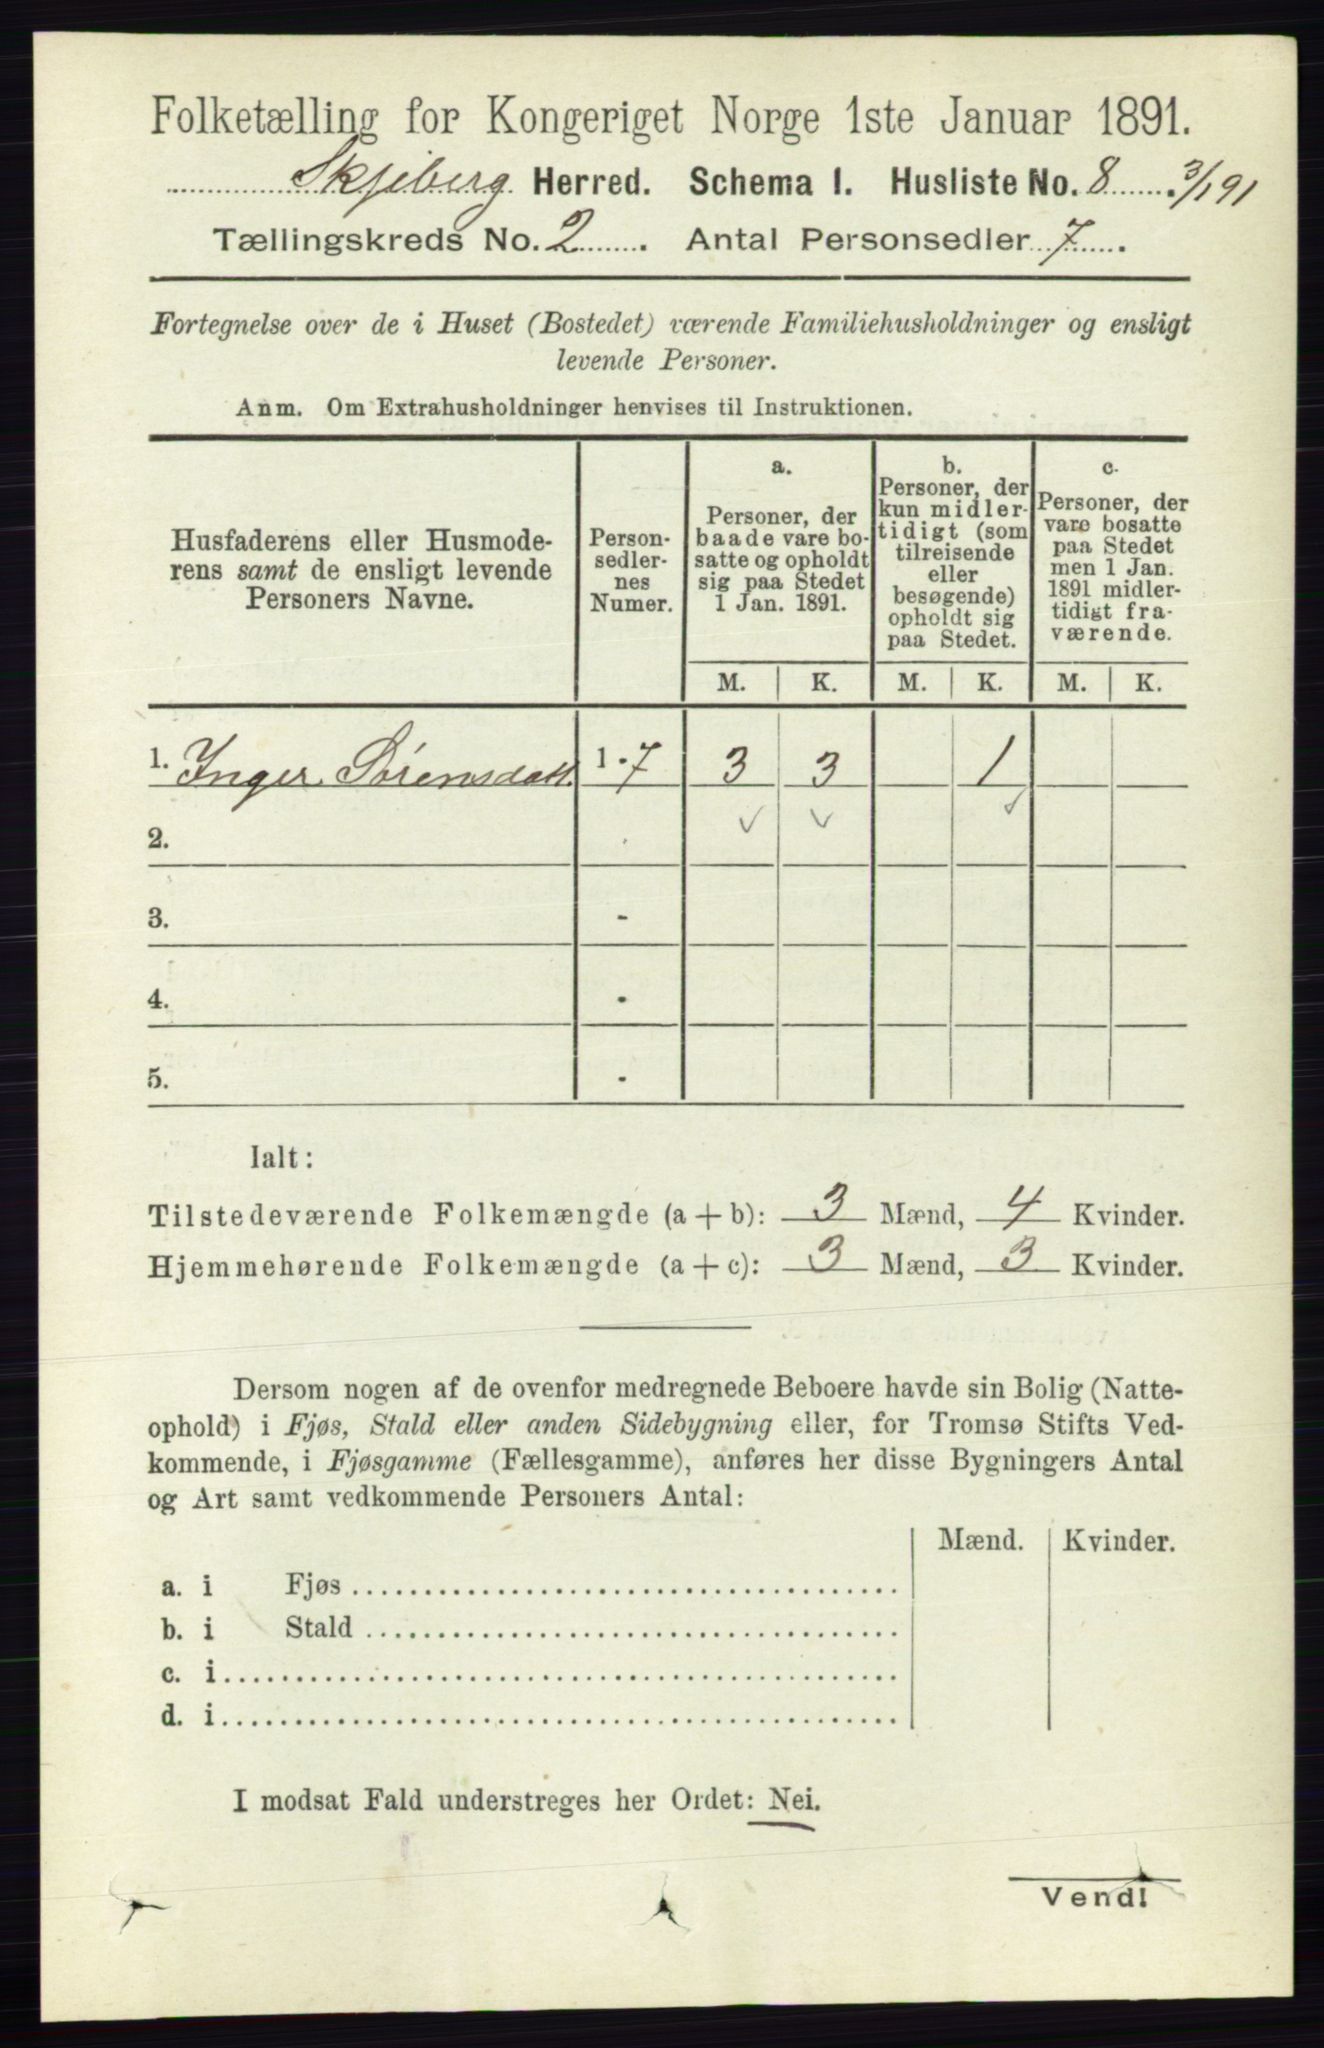 Folketælling for Kongeriget Norge 1ste Januar 1891.
Skjeberg Herred. Schema I. Husliste No. 8 3/1 91
Tællingskreds No. 2. Antal Personsedler 7.
Fortegnelse over de i Huset (Bostedet) værende Familiehusholdninger og ensligt
levende Personer.
Anm. Om Extrahusholdninger henvises til Instruktionen.
Husfaderens eller Husmode-
rens samt de ensligt levende
Personers Navne.
Person-
sedler-
nes
Numer.
a.
Personer, der
baade vare bo-
satte og opholdt
sig paa Stedet
1 Jan. 1891.
b.
Personer, der
kun midler-
tidigt (som
tilreisende
eller
besøgende)
opholdt sig
paa Stedet.
c.
Personer, der
vare bosatte
paa Stedet
men 1 Jan.
1891 midler-
tidigt fra-
værende.
M. K. M. K. M. K.
1. Inger Sørensdatt. 1 - 7 3 3 1
2.
3. -
4. -
5. -
Ialt:
Tilstedeværende Folkemængde (a + b): 3 Mænd, 4 Kvinder.
Hjemmehørende Folkemængde (a + c): 3 Mænd, 3 Kvinder.
Dersom nogen af de ovenfor medregnede Beboere havde sin Bolig (Natte-
ophold) i Fjøs, Stald eller anden Sidebygning eller, for Tromsø Stifts Ved-
kommende, i Fjøsgamme (Fællesgamme), anføres her disse Bygningers Antal
og Art samt vedkommende Personers Antal:
Mænd. Kvinder.
a. i Fjøs
b. i Stald
c. i
d. i
I modsat Fald understreges her Ordet: Nei.
Vend!